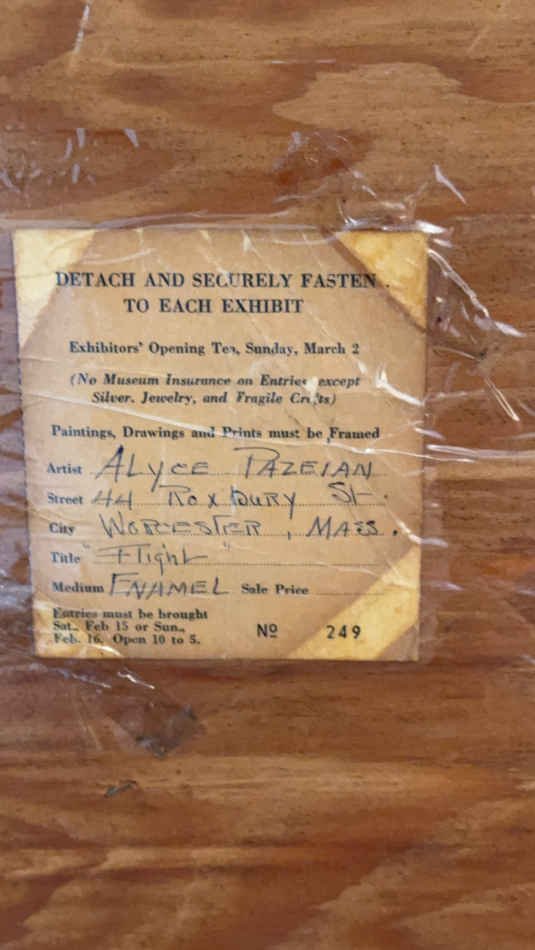 DETACH AND SECURELY FASTEN
TO EACH EXHIBIT
Exhibitors' Opening Tea, Sunday, March 2
(No Museum Insurance on Entries except
Silver, Jewelry, and Fragile Crafts)
Paintings, Drawings and Prints must be Framed
Artist ALYCE PAZEIAN
Street 44 Roxbury St.
City WORCESTER, MASS.
Title "Flight"
Medium ENAMEL Sale Price
Entries must be brought
Sat., Feb 15 or Sun.,
Feb. 16. Open 10 to 5.
Nº 249